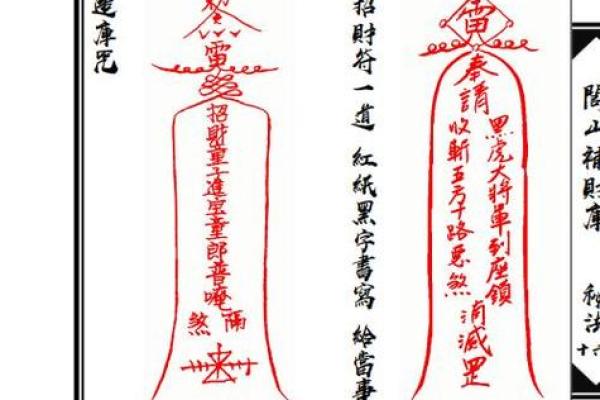 閭山補財庫 秘法
雷
奉請
黑虎大將軍到座鎮
收斬五方十路惡煞
消滅罡
招財符一道 紅紙黑字書寫 給當事
招財童子進宝童郎普唵
煞
庫咒